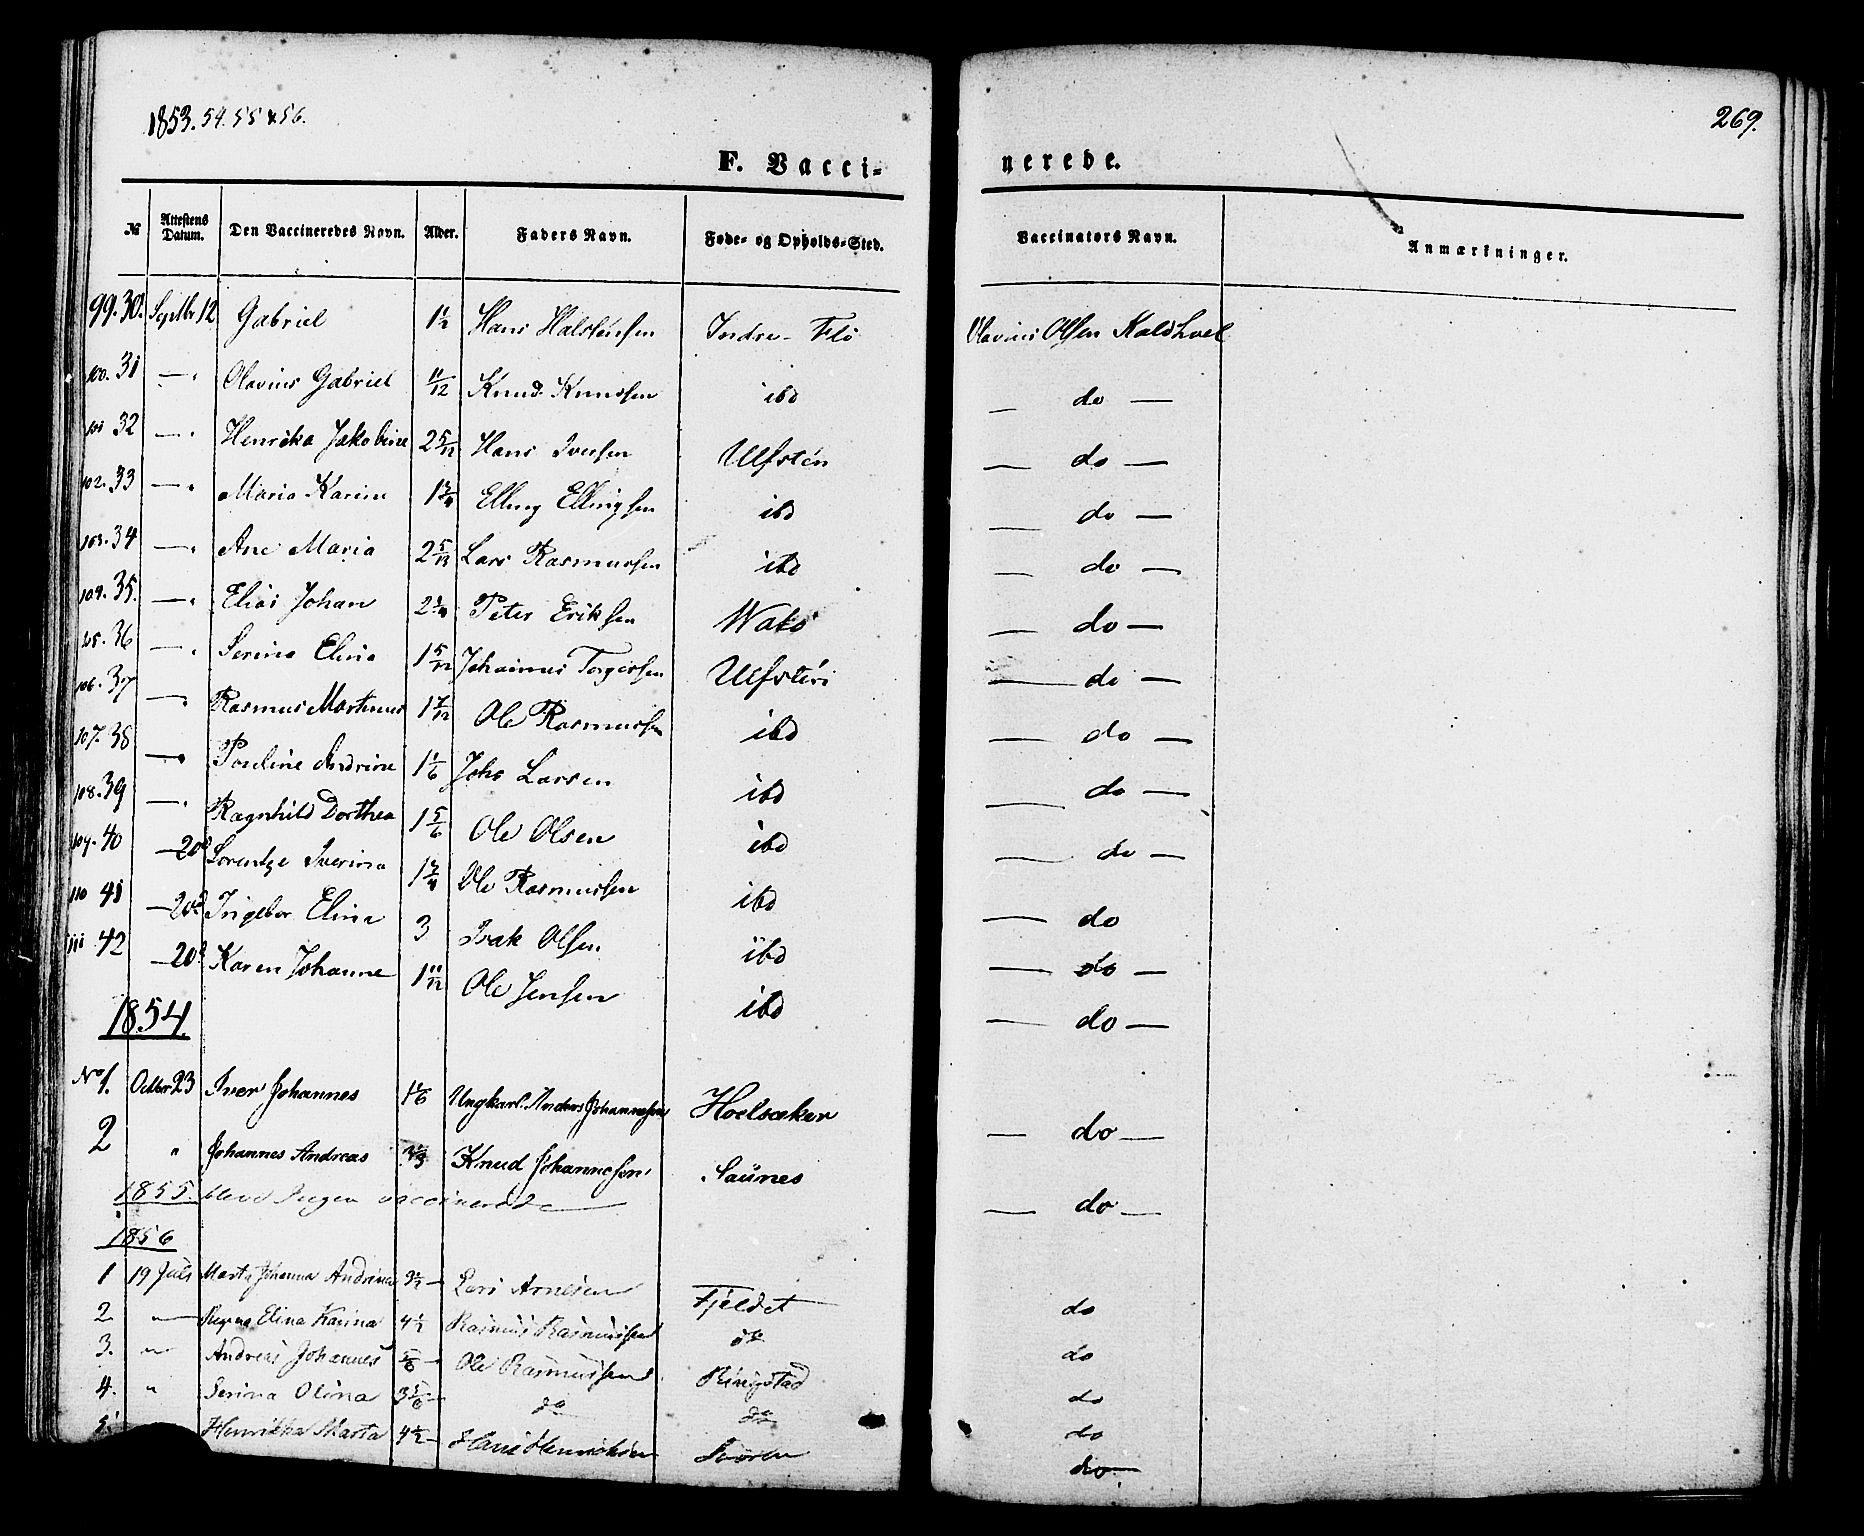 1853. 54. 55 & 56.
269.
F. Vacci-
nerede.
№ Attestens Datum. Den Vaccineredes Navn. Alder. Faders Navn. Føde- og Opholds-Sted. Vaccinators Navn. Anmærkninger.
99. 30. Septbr 12 Gabriel 1½ Hans Halstensen Indre-Flø Olavius Olsen Kaldhvel
100. 31 — " Olavius Gabriel 11/12 Knud Knudsen ibd — do —
101 32 — " Henrika Jakobine 2 5/12 Hans Iversen Ulfstén — do —
102. 33 — " Maria Karine 1¾ Elling Ellingsen ibd — do —
103. 34 — " Ane Maria 2 Lars Rasmussen ibd — do —
104. 35. — " Elias Johan 2¼ Peter Eriksen — do —
105. 36 — " Serina Elina 1 5/12 Johannes Torgersen Ulfstén — do —
106. 37 — " Rasmus Martinus 1 7/12 Ole Rasmussen ibd — do —
107. 38 — " Pouline Andrine 1 1/6 Johs Larsen ibd — do —
108. 39 — " Ragnhild Dorthea 1 5/6 Ole Olsen ibd — do —
109. 40 — 20d Lorentze Iverina 1¾ Ole Rasmussen ibd — do
110 41 — 20d Ingebor Elina 3 Isak Olsen ibd — do —
111 42 — 20d Karen Johanne 1 11/12 Ole Jensen ibd — do —
1854.
No 1. Octbr 23 Iver Johannes 1 1/6 Ungkarl Anders Johannessen Hoelsæker — do —
2 " Johannes Andreas Knud Johannesen Saünes — do —
1855. Ingen vaccinerede
1856
1 19 Juli Marta Johanna Andrina 3½ — Lars Arnesen Fjeldet do
2. — Elina Karina 4½ Rasmus Rasmussen do do
3. " Andreas Johannes 5/6 — Ole Rasmussen Ringstad do
4. " Serina Olina 3 5/6 — do do do
5. Henrikka Marta 4½ — Hans Henriksen do.